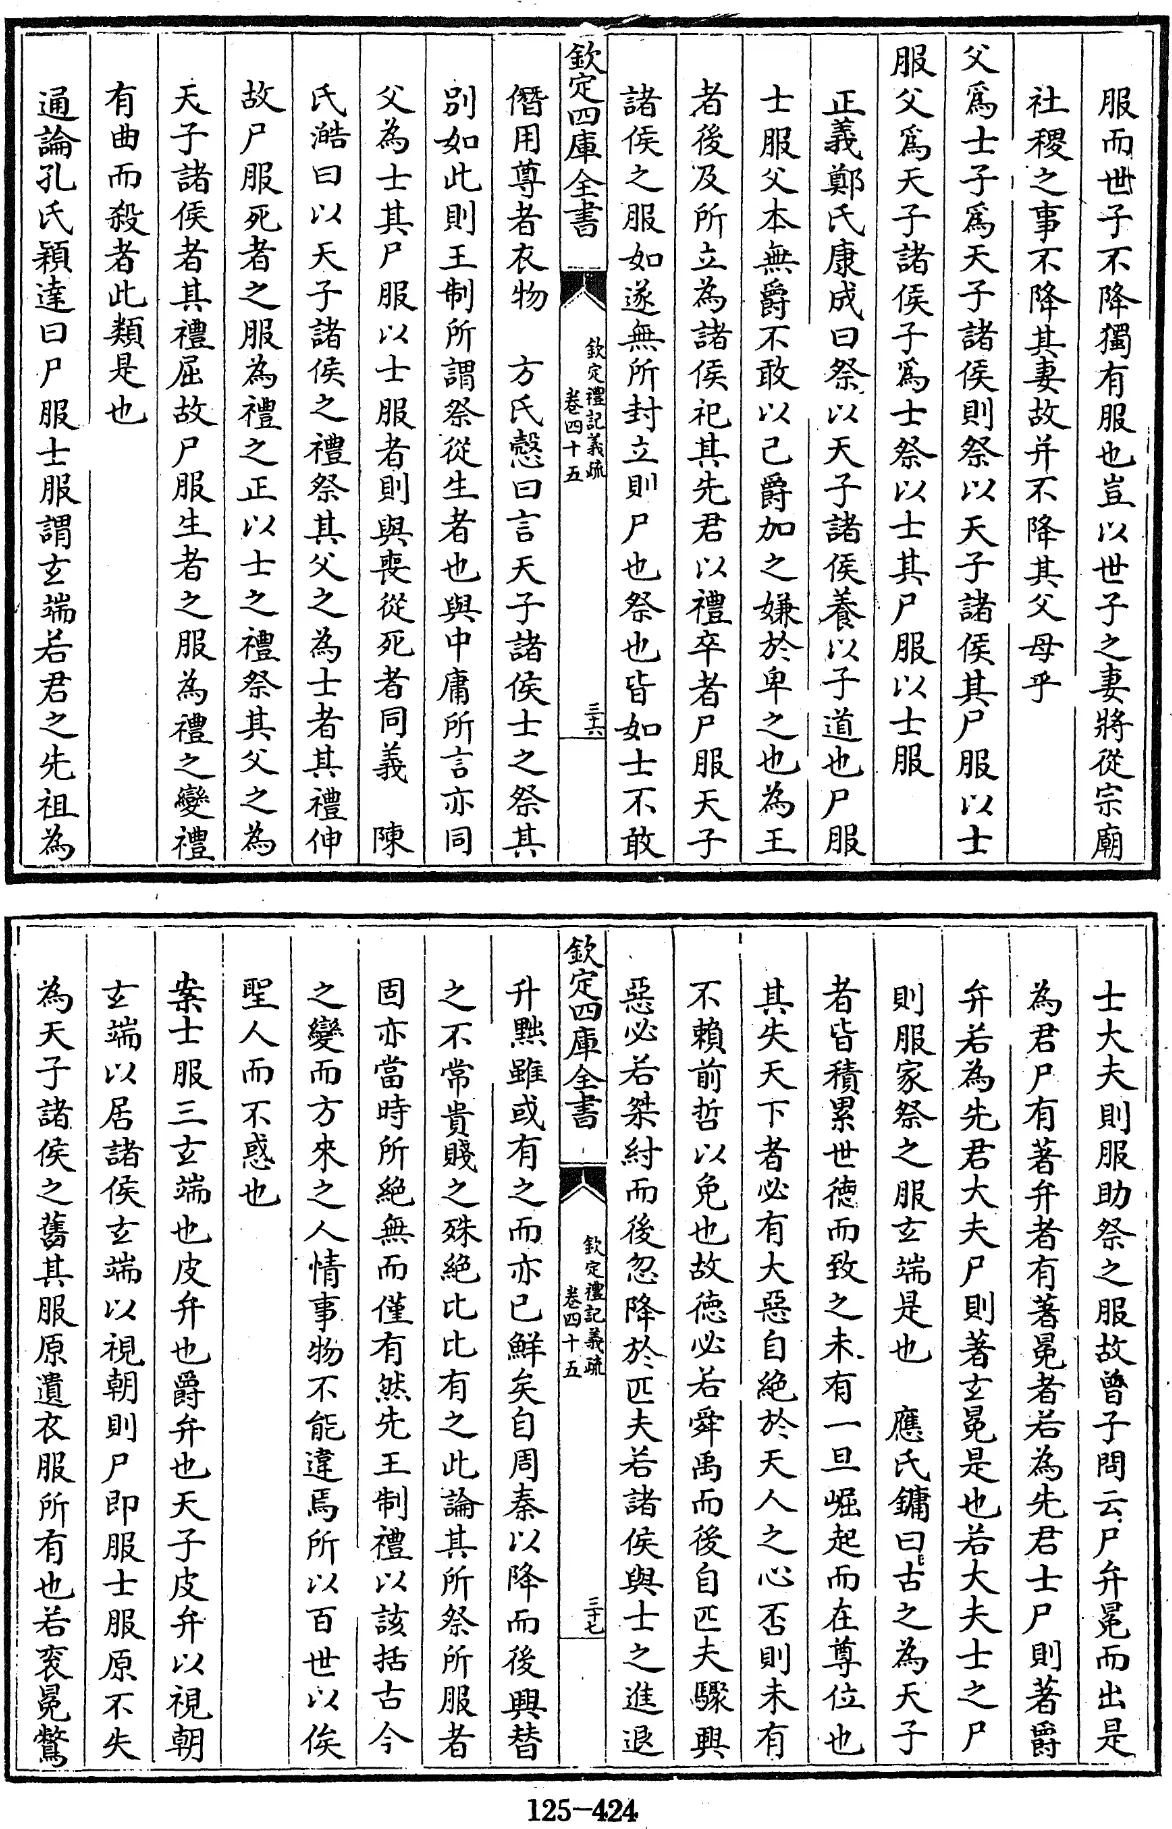 服而世子不降獨有服也豈以世子之妻將從宗廟
社稷之事不降其妻故并不降其父母乎
父爲士子爲天子諸侯則祭以天子諸侯其尸服以士
服父爲天子諸侯子爲士祭以士其尸服以士服
正義鄭氏康成曰祭以天子諸侯養以子道也尸服
士服父本無爵不敢以己爵加之嫌於卑之也為王
者後及所立為諸侯祀其先君以禮卒者尸服天子
諸侯之服如遂無所封立則尸也祭也皆如士不敢
欽定四庫全書
欽定禮記義疏
卷四十五
三十六
僭用尊者衣物　方氏慤曰言天子諸侯士之祭其
别如此則王制所謂祭從生者也與中庸所言亦同
父為士其尸服以士服者則與喪從死者同義　陳
氏澔曰以天子諸侯之禮祭其父之為士者其禮伸
故尸服死者之服為禮之正以士之禮祭其父之為
天子諸侯者其禮屈故尸服生者之服為禮之變禮
有曲而殺者此類是也
通論孔氏穎達曰尸服士服謂玄端若君之先祖為
士大夫則服助祭之服故曾子問云尸弁冕而出是
為君尸有著弁者有著冕者若為先君士尸則著爵
弁若為先君大夫尸則著玄冕是也若大夫士之尸
則服家祭之服玄端是也　應氏鏞曰古之為天子
者皆積累世德而致之未有一旦崛起而在尊位也
其失天下者必有大惡自絶於天人之心否則未有
不賴前哲以免也故德必若舜禹而後自匹夫驟興
惡必若桀紂而後忽降於匹夫若諸侯與士之進退
欽定四庫全書
欽定禮記義疏
卷四十五
三十七
升黜雖或有之而亦已鮮矣自周秦以降而後興替
之不常貴賤之殊絶比比有之此論其所祭所服者
固亦當時所絶無而僅有然先王制禮以該括古今
之變而方來之人情事物不能違焉所以百世以俟
聖人而不惑也
案士服三玄端也皮弁也爵弁也天子皮弁以視朝
玄端以居諸侯玄端以視朝則尸即服士服原不失
為天子諸侯之舊其服原遺衣服所有也若衮冕鷩
125-424